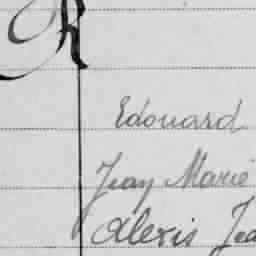 R
Edouard
Jean Marie
Alexis Jea